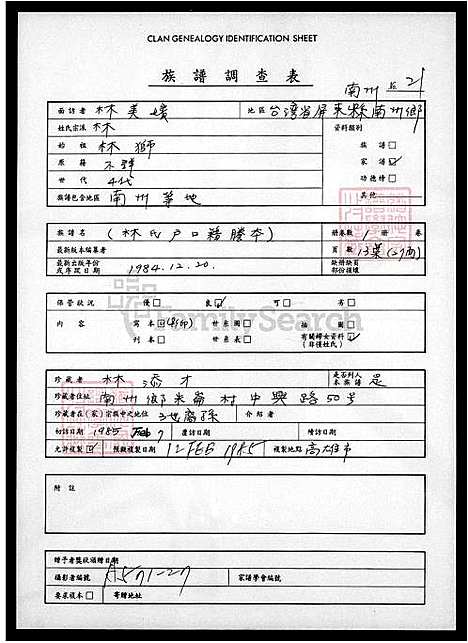 CLAN GENEALOGY IDENTIFICATION SHEET
族譜調查表
南州 21
面訪者 林美媛 地區 台灣省屏東縣南州鄉
姓氏宗派 林 資料類別
始祖 林獅 族譜□
原籍 不詳 家譜☑
世代 4代 功德榜□
族譜包含地區 南州等地 其他
族譜名 (林氏戶口籍謄本) 冊卷數 1 冊 卷
最新版本編纂者 頁數 13葉(27面)
最新出版年份或序跋日期 1984.12.20. 缺冊缺頁部份損壞
保管狀況 優□ 良☑ 可□ 劣□
內容 寫本☑(影印) 世系圖□ 插圖□
刊本□ 世系表□ 有關婦女資料☑(非僅姓氏)
FamilySearch
珍藏者 林添才 是否列入本族譜 是
珍藏者住址 南州鄉米崙村中興路50号
珍藏者在(家)宗族中之地位 3世裔孫 介紹者
初訪日期 1985 Feb 7 覆訪日期 隨訪日期
允許複製☑ 預擬複製日期 12 FEB 1985 複製地點 高雄市
附註
贈予者獎狀頒贈日期
攝影者編號 A571-27 家譜學會編號
要求複本□ 寄贈地址